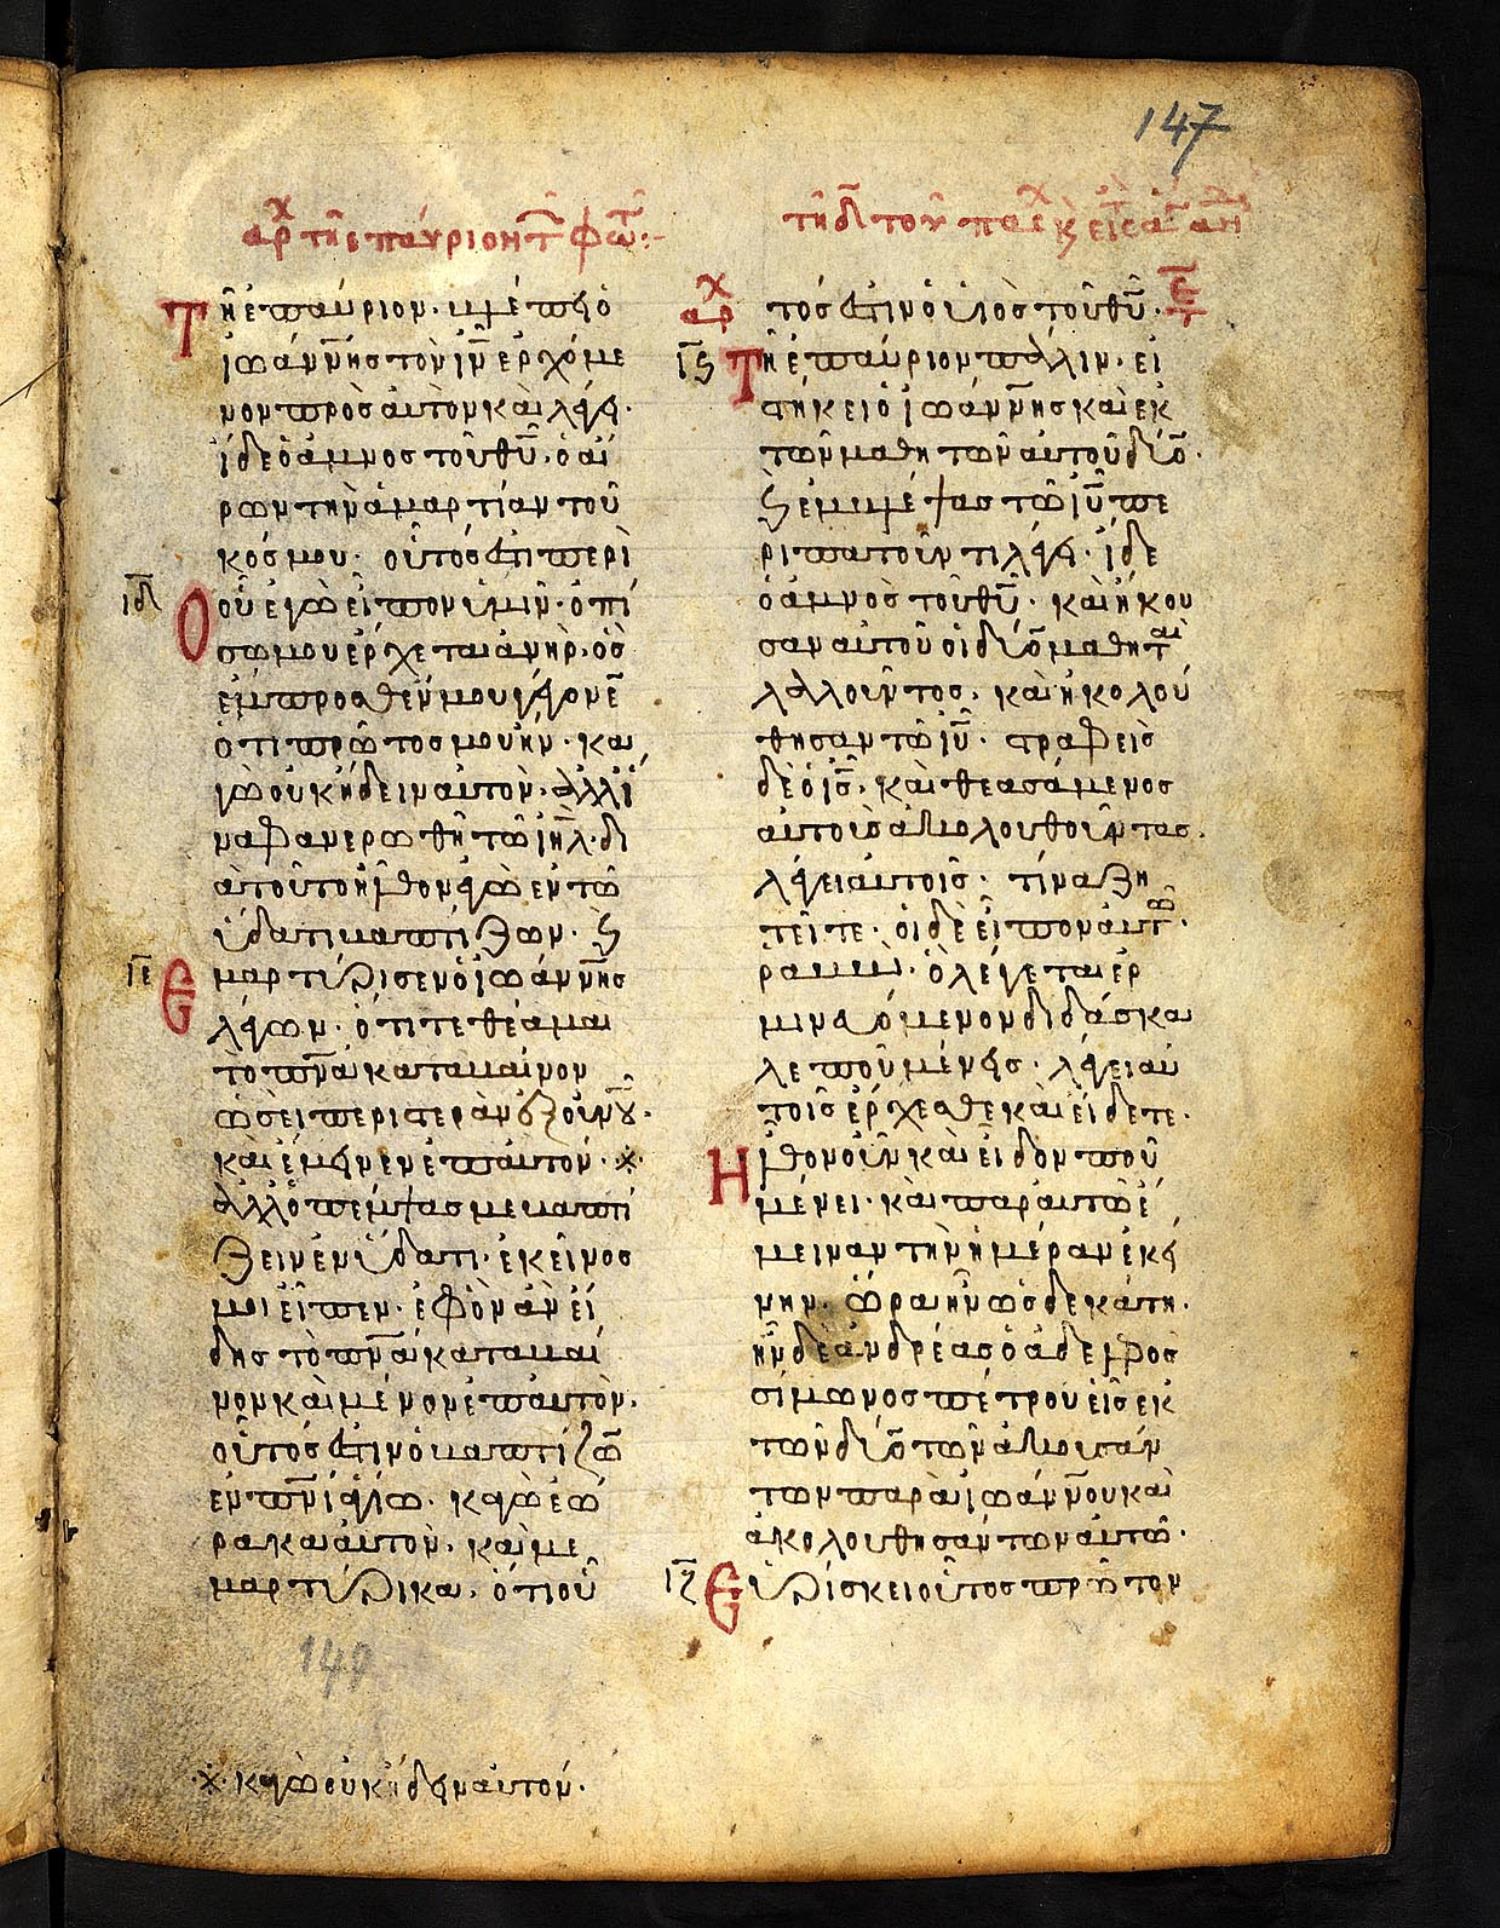 147
αρχ τῆ ἐπαύριον τ φωτ:-
Τῆ ἐπαύριον· βλέπει ὁ
ἰωάννης τὸν ιν ἐρχόμε
νον πρὸς αὐτὸν καὶ λέγει·
ἴδε ὁ ἀμνὸς τοῦ θυ· ὁ αἴ
ρων τὴν ἁμαρτίαν τοῦ
κόσμου· οὗτός ἐστι περὶ
ιδ
οὗ ἐγὼ εἶπον ὑμῖν· ὀπί
Οσω μου ἔρχεται ἀνὴρ· ὃς
ἔμπροσθέν μου γέγονε
ὅτι πρῶτός μου ἦν· κα
γὼ οὐκ ἤδειν αὐτὸν· ἀλλ ἵ
να φανερωθῆ τῶ ιηλ· δι
ὰ τοῦτο ἦλθον ἐγὼ ἐν τῶ
ὕδατι βαπτίζων· ϗ
ιε
Εμαρτύρησεν ὁ ἰωάννης
λέγων· ὅτι τεθέαμαι
τὸ πνα καταβαῖνον
ὡσεὶ περιστερὰν ἐξ οὐνου·
καὶ ἔμεινεν ἐπ αὐτόν· ※·
ἀλλ ὁ πέμψας με βαπτί
ζειν ἐν ὕδατι· ἐκεῖνός
μοι εἶπεν· ἐφ ὃν ἂν ἴ
δης τὸ πνα καταβαῖ
νον καὶ μένον ἐπ αὐτὸν·
οὗτός ἐστιν ὁ βαπτίζω
ἐν πνι ἁγίω· κἀγὼ ἑώ
ρακα αὐτὸν· καὶ με
μαρτύρηκα· ὅτι οὗ
140
·※· κἀγὼ οὐκ ἤδειν αὐτόν·
τῆ δ τοῦ πασχ
τός ἐστιν ὁ υἱὸς τοῦ θυ·
αρχ
ιϛ
Τῆ ἐπαύριον πάλιν· εἱ
στήκει ὁ ἰωάννης καὶ ἐκ
τῶν μαθητῶν αὐτοῦ δύο·
ϗ ἐμβλέψας τῶ ιυ πε
ριπατοῦντι λέγει· ἴδε
ὁ ἀμνὸς τοῦ θυ· καὶ ἤκου
σαν αὐτοῦ οἱ δύο μαθηταὶ
λαλοῦντος· καὶ ἠκολού
θησαν τῶ ιυ· στραφεὶς
δὲ ὁ ις· καὶ θεασάμενος
αὐτοὺς ἀκολουθοῦντας·
λέγει αὐτοῖς· τίνα ζη
τεῖτε· οἱ δὲ εἶπον αὐτῶ·
ραββί· ὃ λέγεται ἑρ
μηνευόμενον διδάσκα
λε ποῦ μένεις· λέγει αὐ
τοῖς ἔρχεσθε καὶ εἴδετε·
Ηλθον οὖν καὶ εἶδον ποῦ
μένει· καὶ παρ αὐτῶ ἔ
μειναν τὴν ἡμέραν ἐκεί
νην· ὥρα ἦν ὡς δεκάτη·
ἦν δὲ ἀνδρέας ὁ ἀδελφὸς
σίμωνος πέτρου εἷς ἐκ
τῶν δύο τῶν ἀκουσάν
των παρὰ ἰωάννου καὶ
ἀκολουθησάντων αὐτῶ·
ιζ
Εὑρίσκει οὗτος πρῶτον